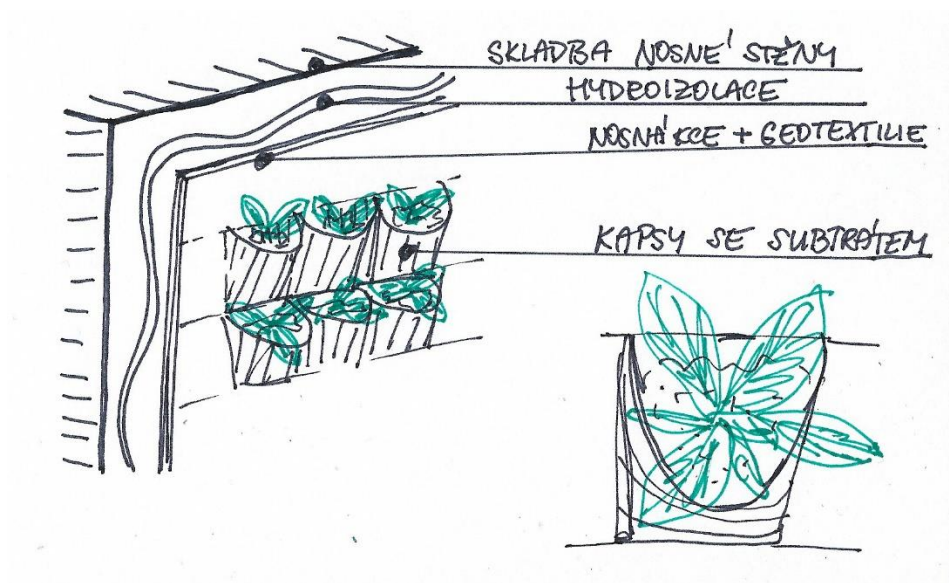 SKLADBA NOSNÉ STĚNY
HYDROIZOLACE
NOSNÁ KCE + GEOTEXTILIE
KAPSY SE SUBTRÁTEM